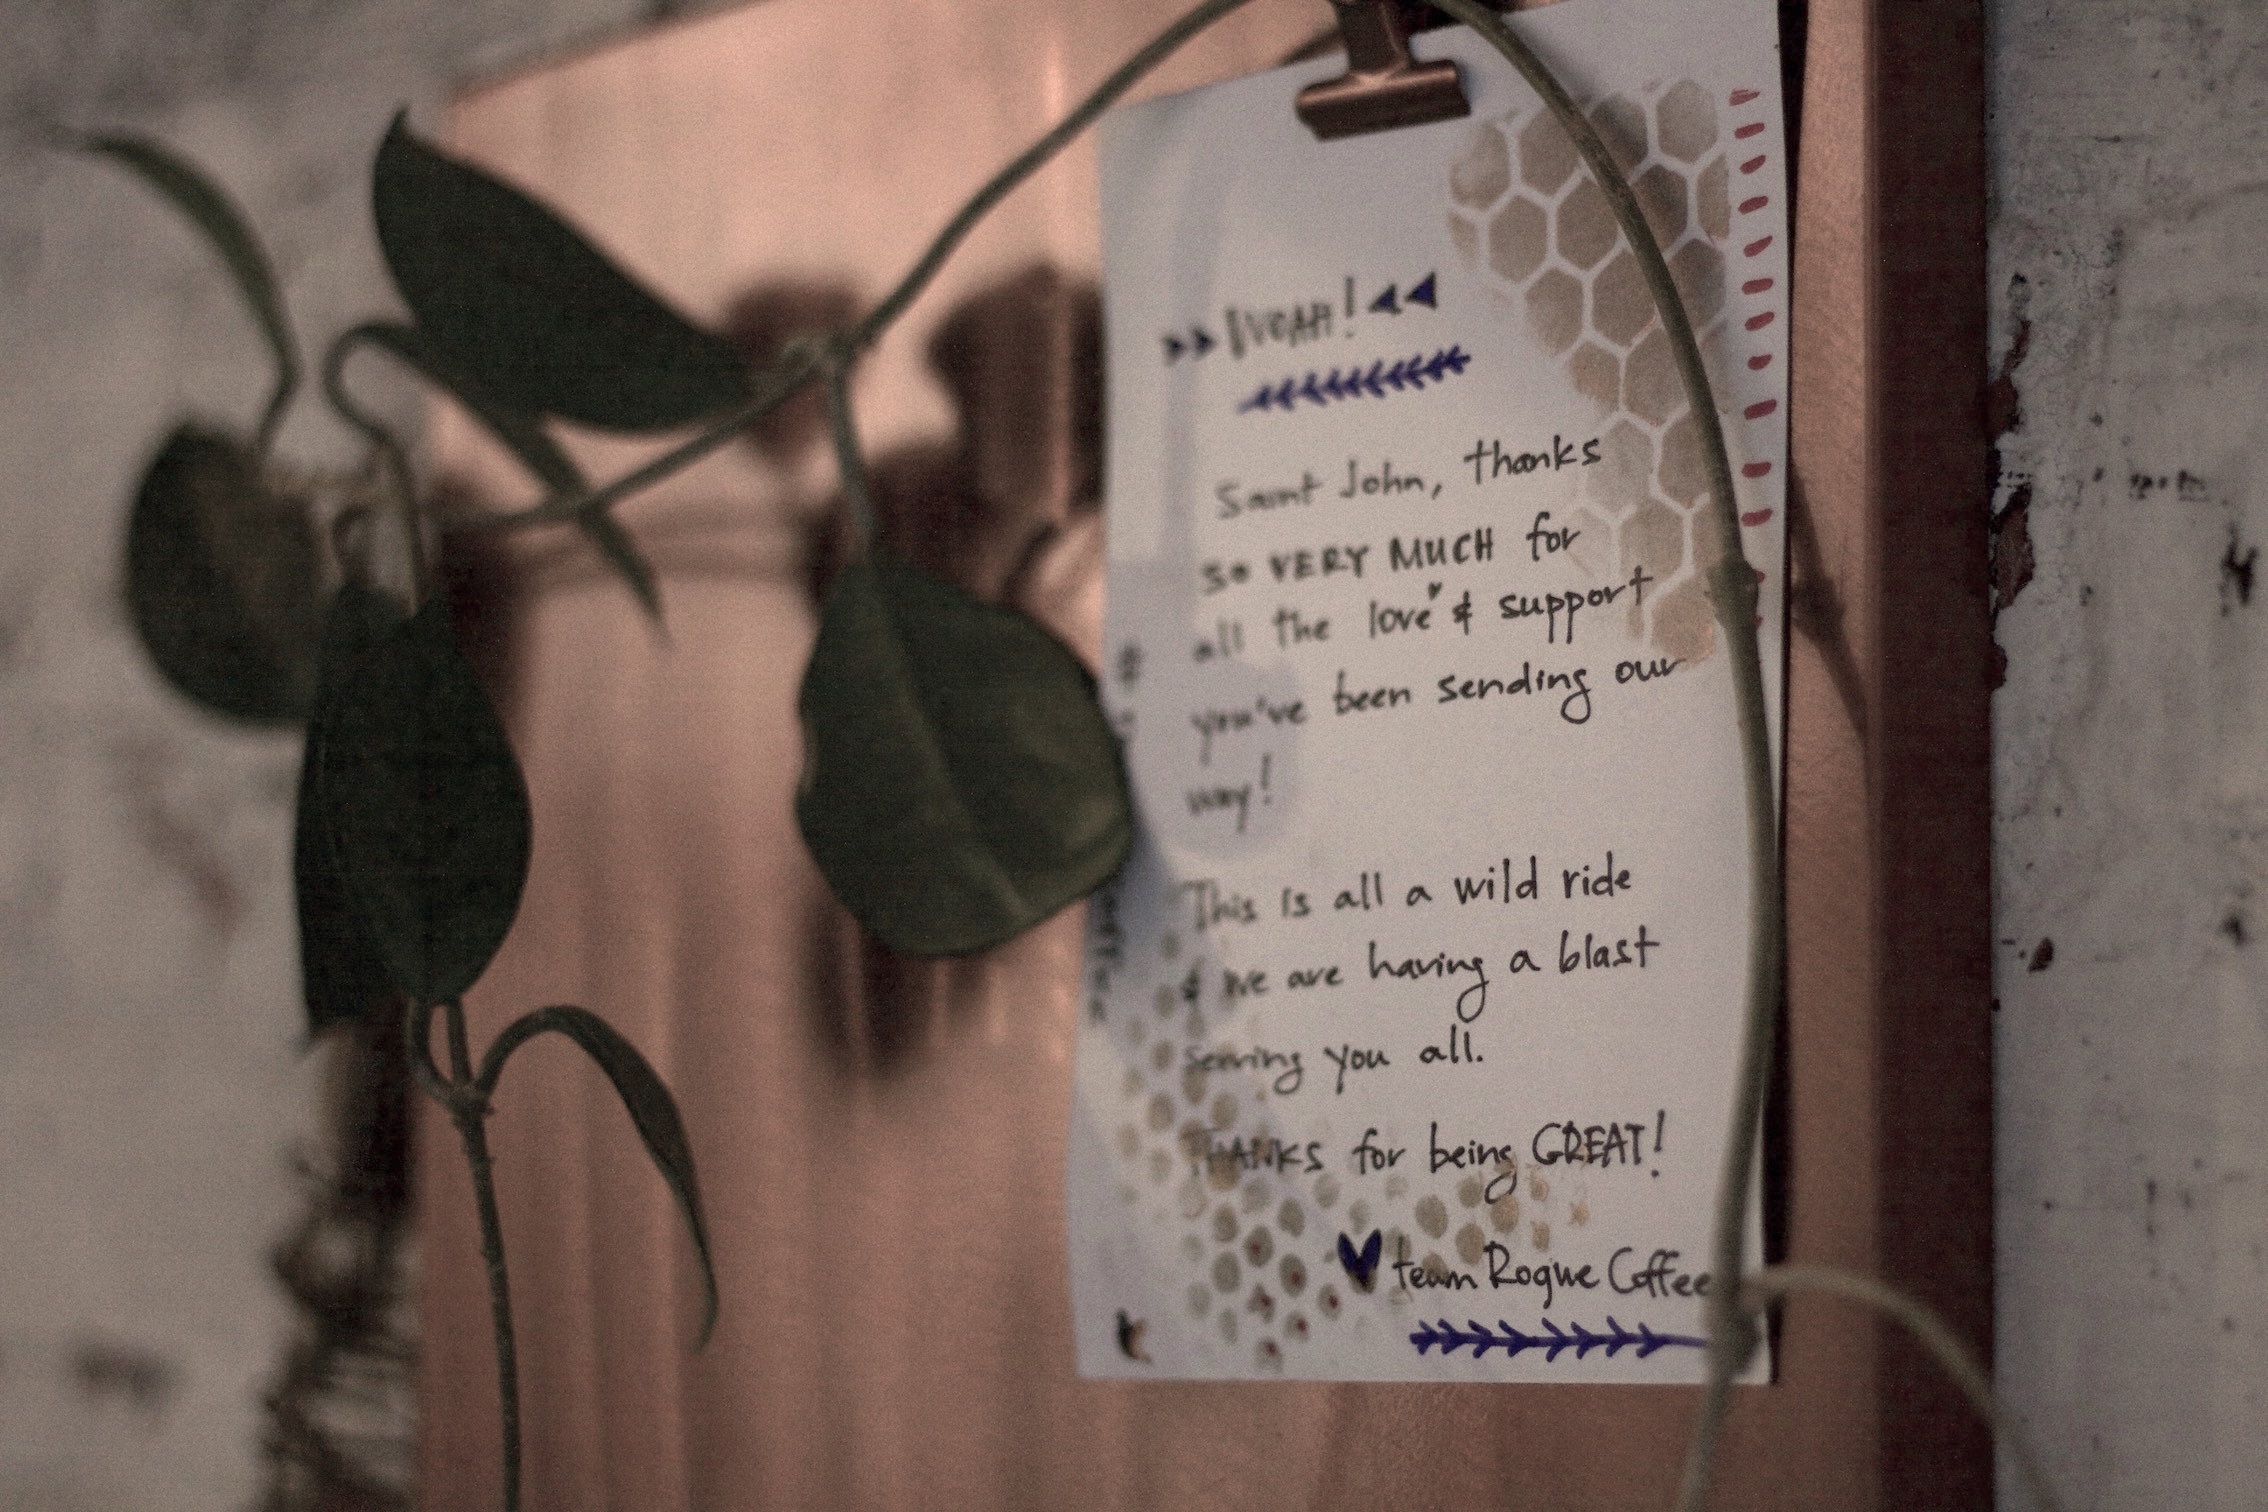 WOAH!
Saint John, thanks
so VERY MUCH for
all the love & support
you've been sending our
way!
This is all a wild ride
& we are having a blast
serving you all.
THANKS for being GREAT!
team Rogue Coffee